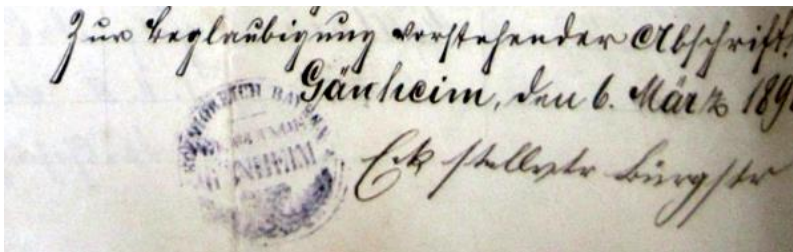 Zur Beglaubigung vorstehender Abschrift.
Gänheim, den 6. März 189
KOENIGREICH BAYERN
GÄNHEIM
Eck stellvtr Bürgstr